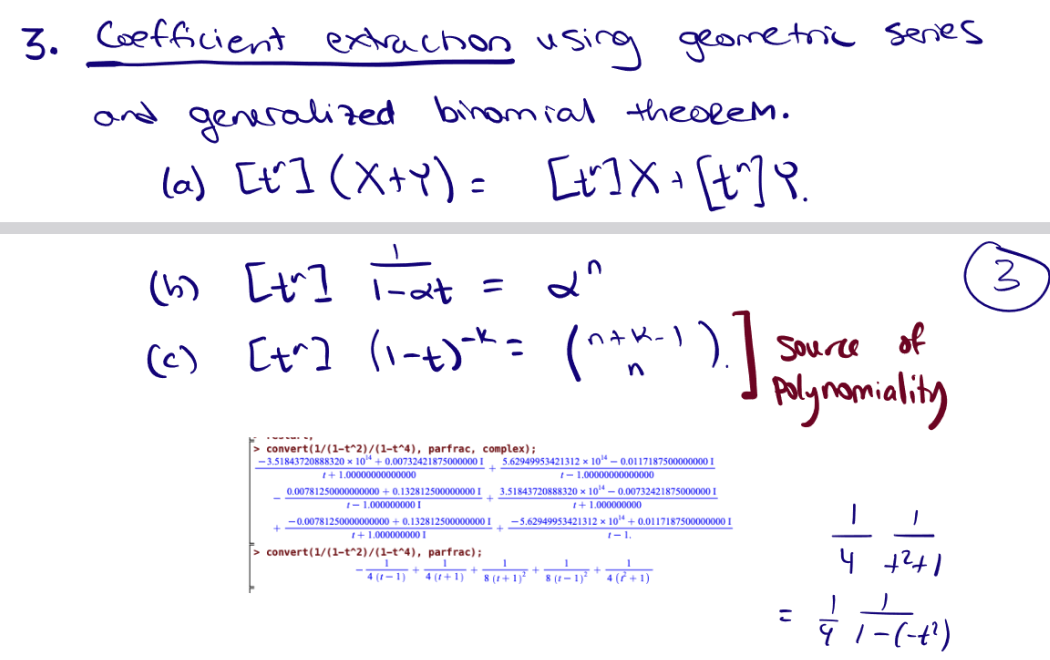 3. Coefficient extraction using geometric series
and generalized binomial theorem.
(a) [tⁿ] (X+Y) = [tⁿ]X + [tⁿ]Y.
(b) [tⁿ] 1/(1-αt) = αⁿ
3
(c) [tⁿ] (1-t)^{-k} = (n+k-1 choose n).] source of
polynomiality
> convert(1/(1-t^2)/(1-t^4), parfrac, complex);
(-3.51843720888320 × 10^14 + 0.00732421875000000 I)/(t + 1.00000000000000) + (5.62949953421312 × 10^14 - 0.0117187500000000 I)/(t - 1.00000000000000)
- (0.00781250000000000 + 0.132812500000000 I)/(t - 1.000000000 I) + (3.51843720888320 × 10^14 - 0.00732421875000000 I)/(t + 1.000000000)
+ (-0.00781250000000000 + 0.132812500000000 I)/(t + 1.000000000 I) + (-5.62949953421312 × 10^14 + 0.0117187500000000 I)/(t - 1.)
> convert(1/(1-t^2)/(1-t^4), parfrac);
- 1/(4 (t - 1)) + 1/(4 (t + 1)) + 1/(8 (t + 1)^2) + 1/(8 (t - 1)^2) + 1/(4 (t^2 + 1))
1/4 1/(t²+1)
= 1/4 1/(1-(-t²))